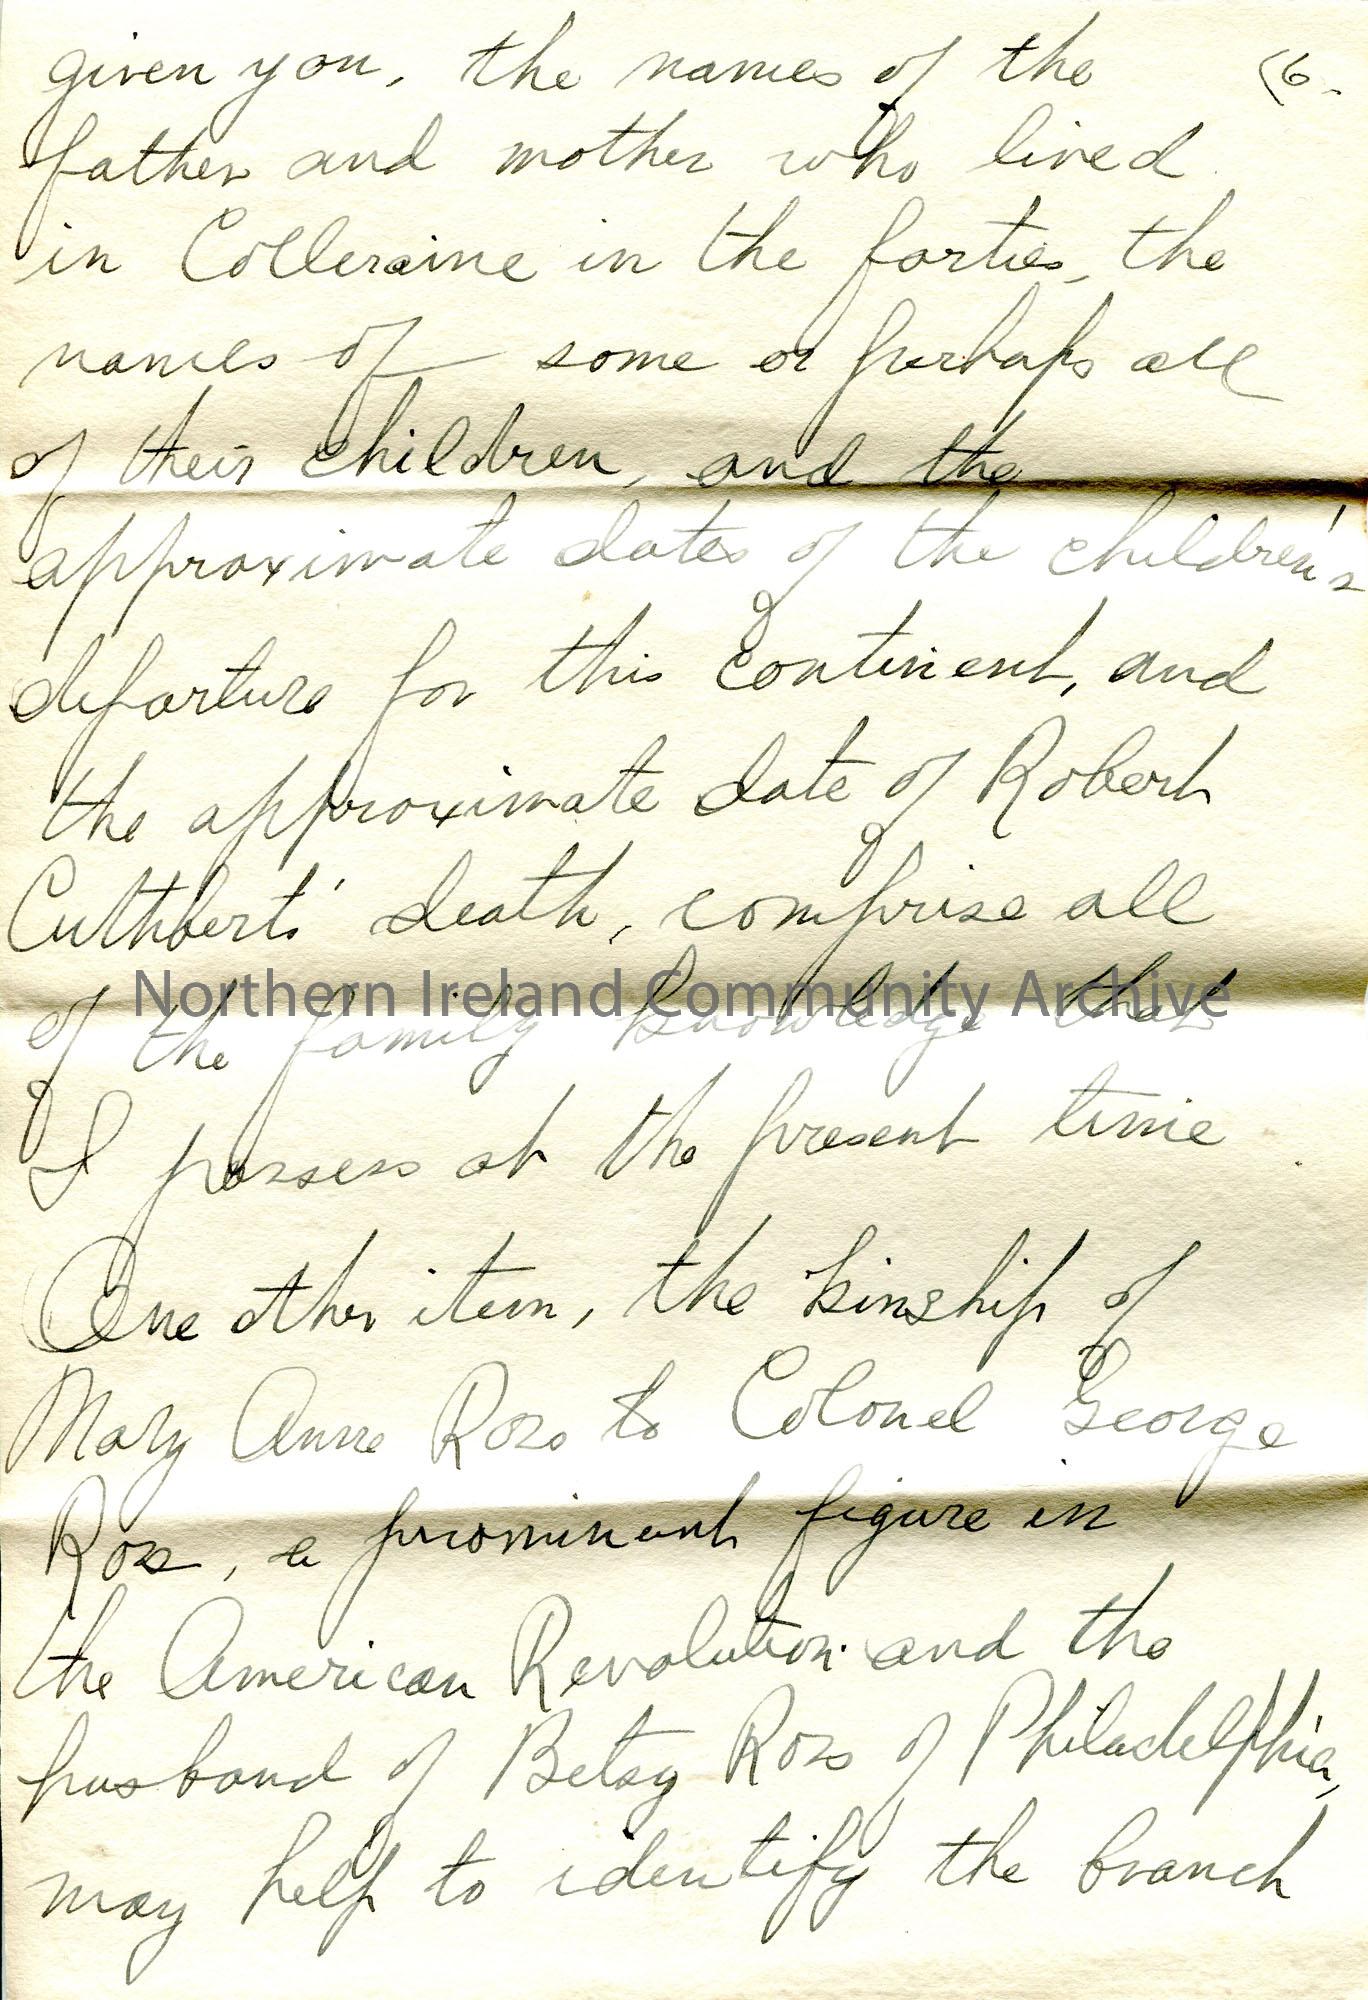 given you, the names of the (6.
father and mother who lived
in Colleraine in the forties, the
names of some or perhaps all
of their children, and the
approximate dates of the children's
departure for this continent, and
the approximate date of Robert
Cuthberts' death, comprise all
of the family knowledge that
Northern Ireland Community Archive
I possess at the present time
One other item, the kinship of
Mary Anne Ross to Colonel George
Ross, a prominent figure in
the American Revolution and the
husband of Betsy Ross of Philadelphia,
may help to identify the branch